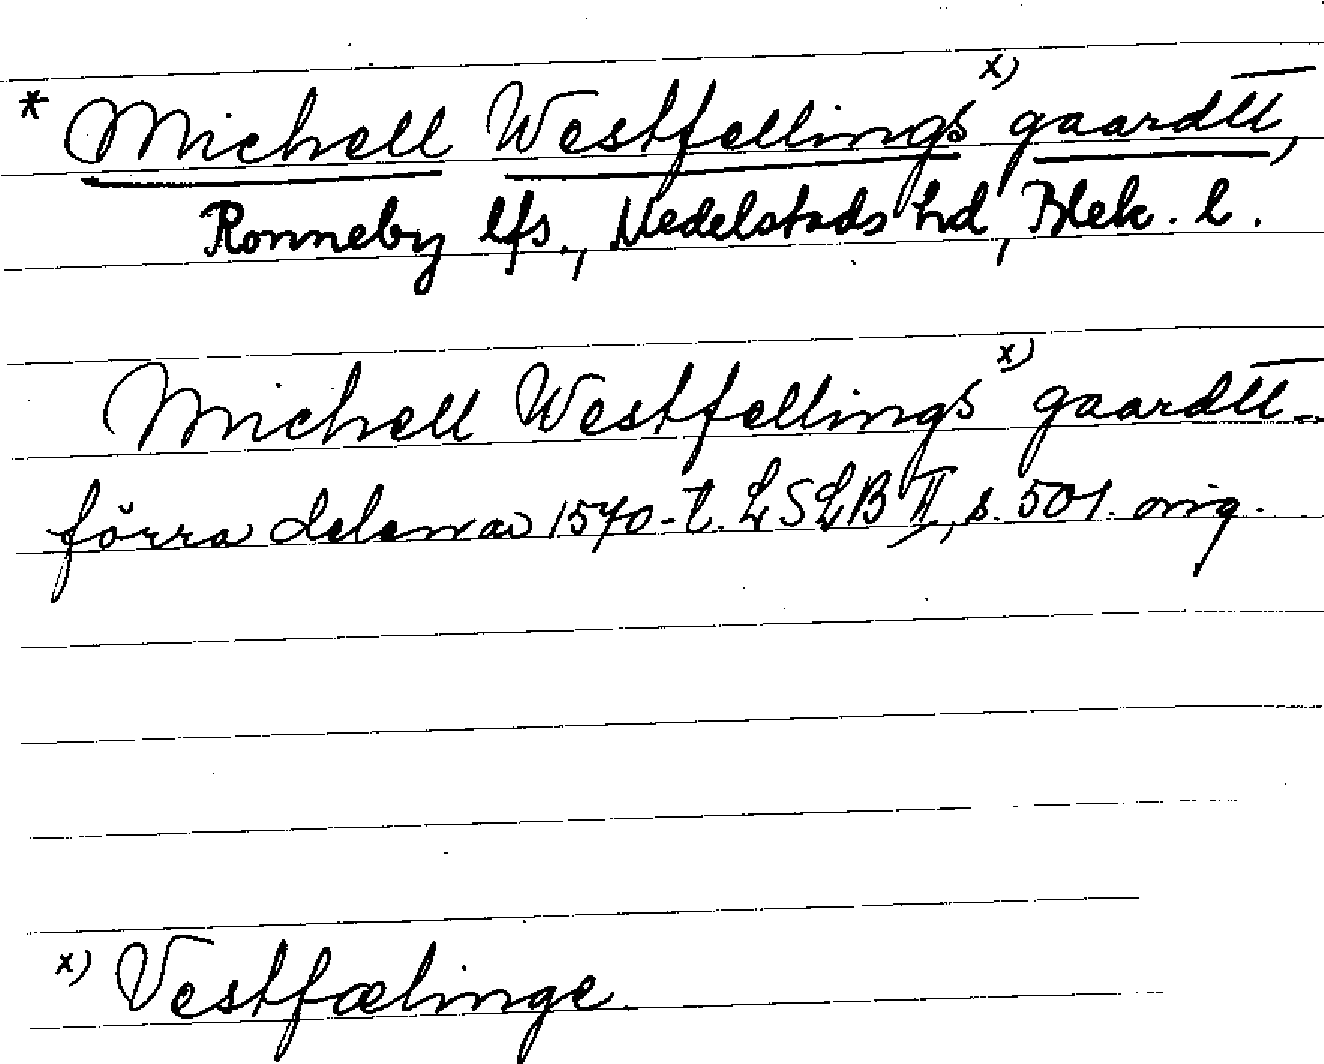 * Michell Westfellings x) gaardtt,
Ronneby lfs., Medelstads hd, Blek. l.
Michell Westfellings x) gaardtt
förra delen av 1570-t. LSLB II, s. 501. orig.
x) Vestfælinge